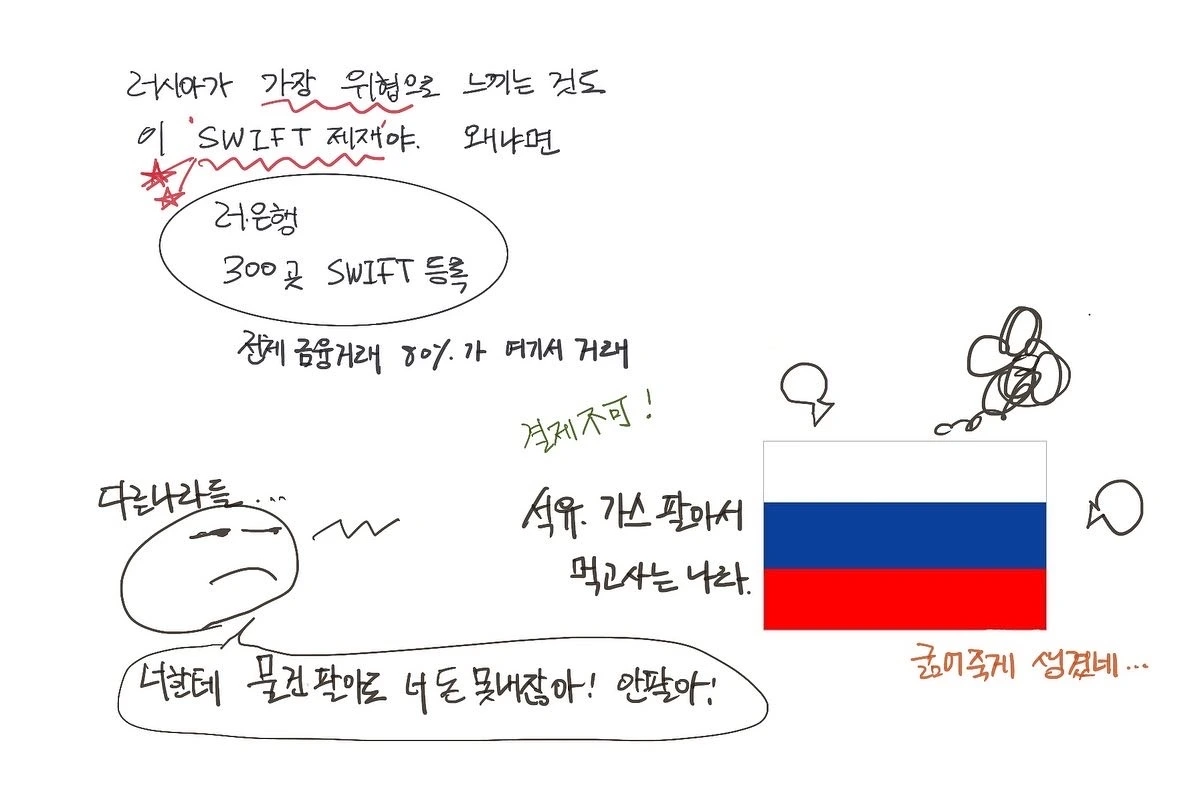 러시아가 가장 위협으로 느끼는 것도
이 'SWIFT 제재'야. 왜냐면
러.은행
300곳 SWIFT 등록
전체 금융거래 80%가 여기서 거래
결제不可!
다른나라들...
석유. 가스 팔아서
먹고사는 나라.
굶어죽게 생겼네...
너한테 물건 팔아도 너 돈 못내잖아! 안팔아!